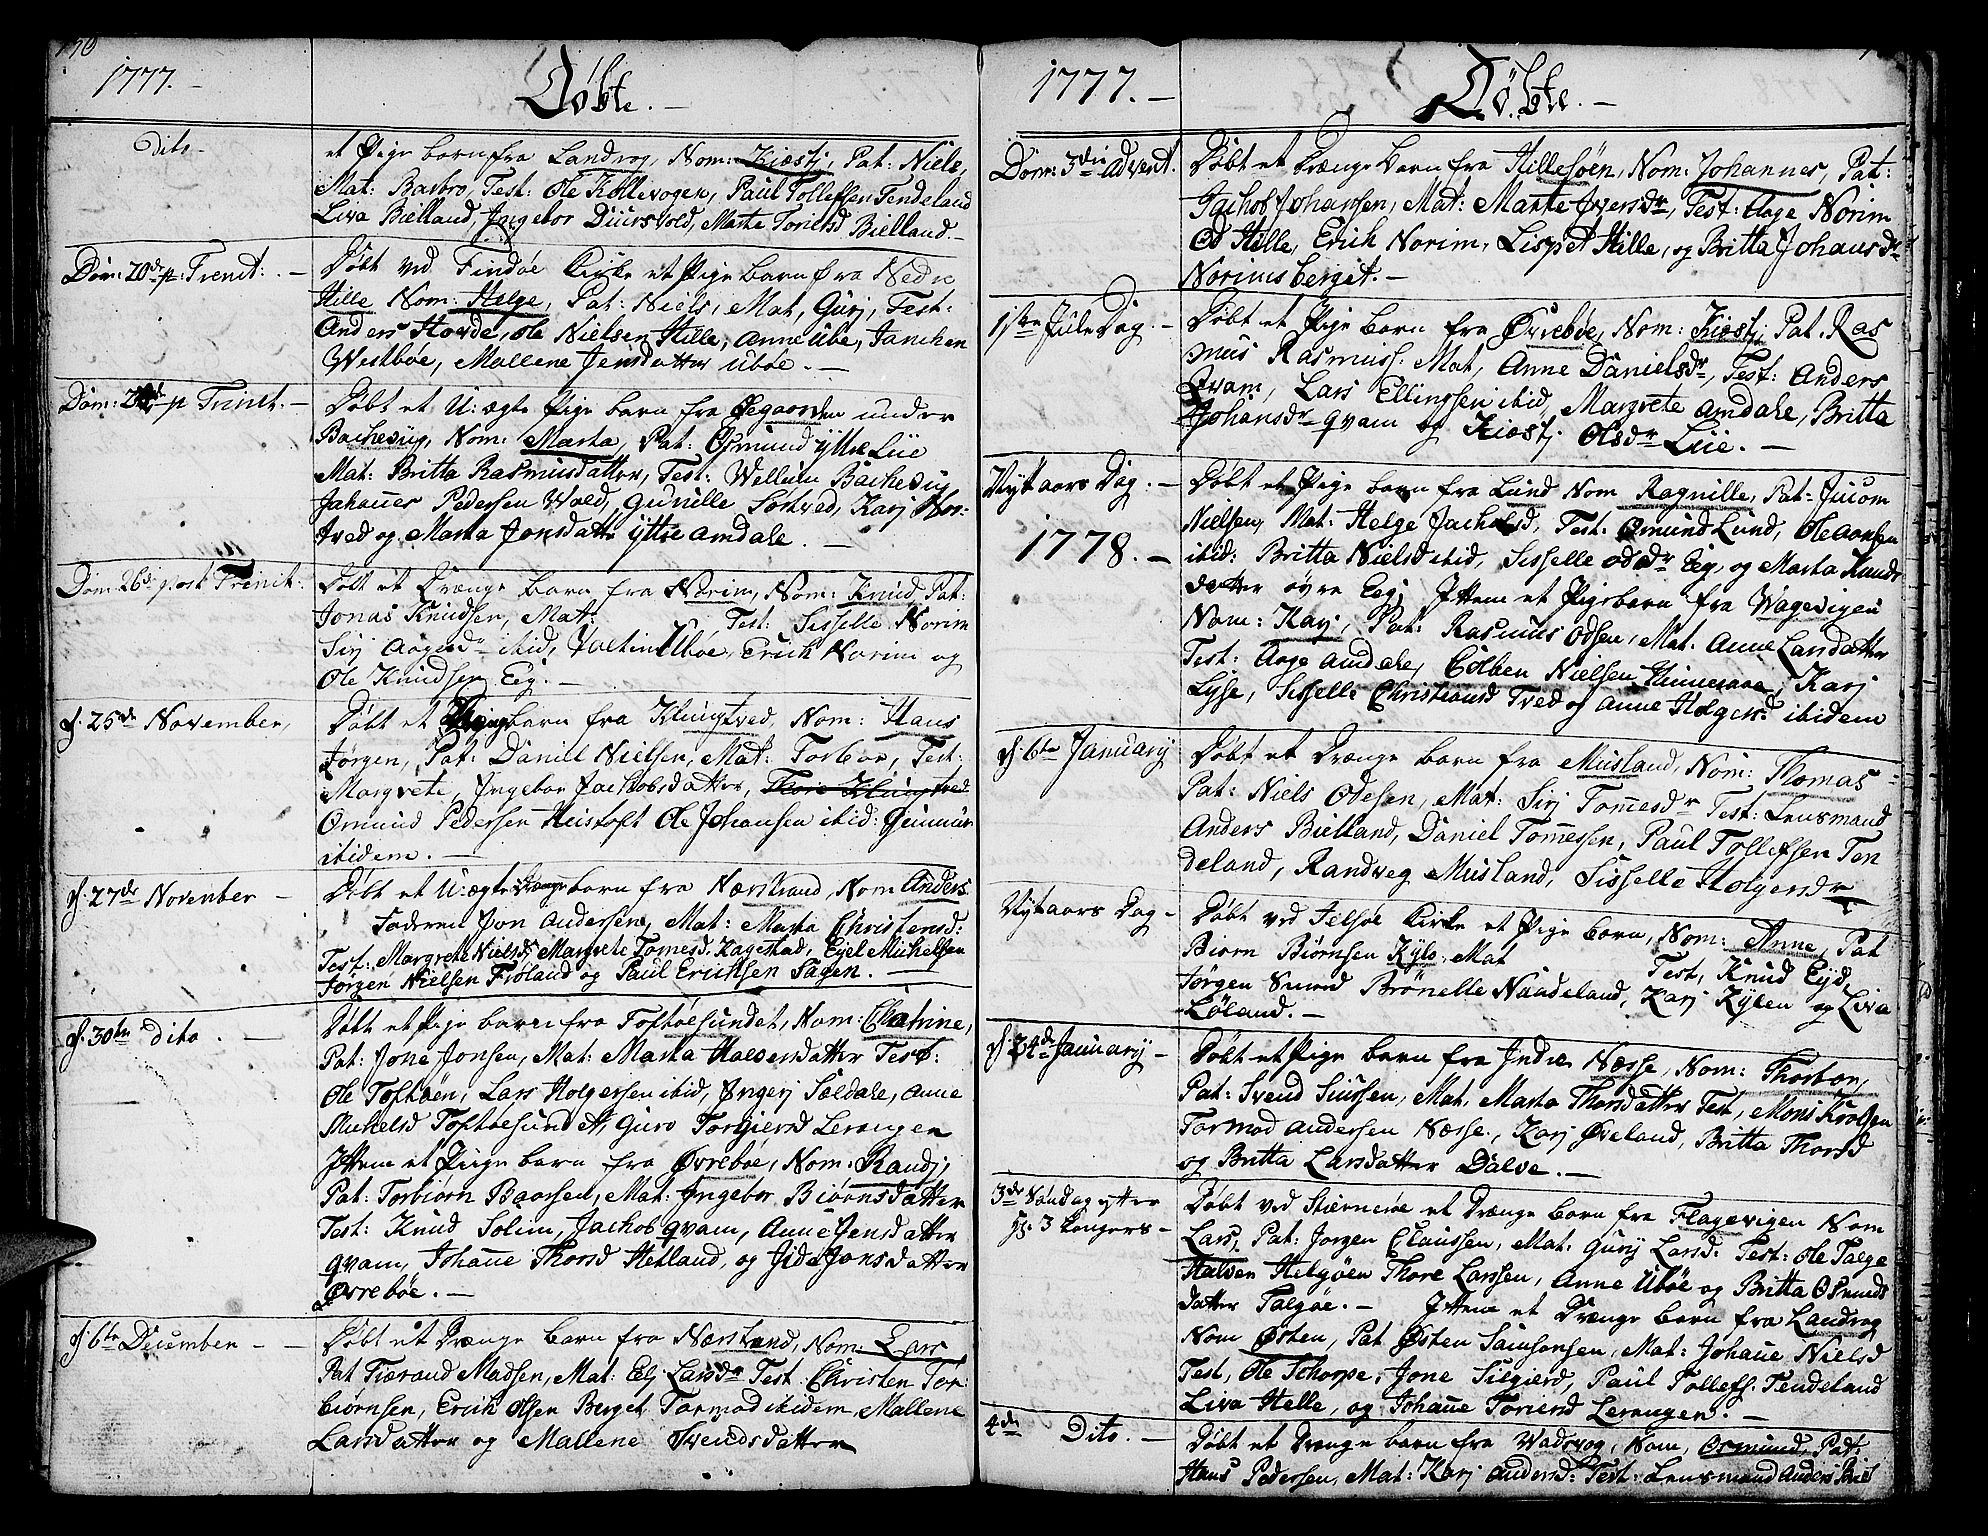 190
1777. -
Døbte. -
Dito -
et Pige barn fra Landrog, Nom: Kiøstj, Pat: Niels,
Mat: Barbro, Test: Ole Kollevogen, Paul Tollefsen Tendeland
Liva Bielland, Jngebor Duursvold, Marta Toriersd Bielland -
Dom: 20de p: Trenit: -
Døbt ved Findøe Kirke et Pige barn fra Nedre
Hille Nom: Helge, Pat: Niels, Mat, Gurj, Test:
Anders Hovde, Ole Nielsen Hille, Anne Ubøe, Janchen
Westbøe, Mallene Jensdatter Ubøe. -
Dom: p Trinit. -
Døbt et U:ægte Pige barn fra Øegaarden under
Bachevig, Nom: Marta, Pat: Osmund Yttre Liie
Mat: Britta Rasmusdatter, Test: Wellum Bachevig
Johannes Pedersen Wold, Gunille Sørtved, Karj Nor:
tved og Marta Jonsdatter Yttre Amdale. -
Dom: 26de post Trenit:
Døbt et Drænge barn fra Norim, Nom: Knud, Pat:
Jonas Knudsen, Mat: Test: Sisselle Norim
Sirj Aagesdr ibid, Ubøe, Erich Norim og
Ole Knudsen Eig. -
d. 25de November,
Døbt et barn fra Klungtved, Nom: Hans
Jørgen, Pat: Daniel Nielsen, Mat: Torbor, Test:
Margrete, Jngebor Jachobsdatter, Thore Klungtved
Osmund Pedersen Heistoft Ole Johansen ibid: Gunnur
ibidem. -
d. 27de November -
Døbt et U:ægte Drænge barn fra Nærstrand, Nom Anders
Faderen Jon Andersen, Mat: Marta Christensd:
Test: Margrete Nielsd, Margrete Tomesd. Kagestad, Eyel Michelsen
Jørgen Nielsen Frøland og Paul Erichsen Sagen. -
d. 30te dito. -
Døbt et Pige barn fra Toftøesundet, Nom: Chatrine,
Pat: Jone Jonsen, Mat: Marta Halversdatter Test:
Ole Toftøen, Lars Holgersen ibid, Jngerj Sældale, Anne
Michelsd Toftøesundet, Guro Torgiersd Lerangen
Jttem et Pige barn fra Øvrebøe, Nom: Randj,
Pat: Torbiørn Baarsen, Mat: Jngebor Biørnsdatter
Test: Knud Solim, Jachob Qvam, Anne Jensdatter
Qvam, Johane Thorsd Hetland, og Jide Jonsdatter
Øvrebøe. -
d. 6te December - -
Døbt et Drænge barn fra Nærstrand, Nom: Lars
Pat Tiærand Madsen, Mat: Elj Larsdr Test: Christen Tor:
biørnsen, Erich Olsen Berget Tormod ibidem, Mallene
Larsdatter og Mallene Svendsdatter
1777. -
Døbte. -
Dom: 3die Advent.
Døbt et Drænge Barn fra Hillesøen, Nom: Johannes, Pat:
Jachob Johansen, Mat: Marta Jversdr, Test: Aage Norim
Od Hille, Erich Norim, Lispet Hille, og Britta Johansdr
Norimsberget. -
1ste Jule Dag. -
Døbt et Pige barn fra Øvrebøe, Nom: Kiøstj, Pat: Ras
mus Rasmuss: Mat, Anne Danielsdr, Test: Anders
Qvam, Lars Ellingsen ibid, Margrete Amdale, Britta
Johansdr Qvam og Kiøstj Olsdr Liie. -
Nytaars Dag. -
1778. -
Døbt et Pige barn fra Lund Nom Ragnille, Pat: Jucom
Nielsen, Mat: Helge Jachobsd, Test: Osmund Lund, Ole Aansen
ibid: Britta Nielsd ibid, Sisselle Odsdr Eig, og Marta Knuds
datter øvre Eeg, Jttem et Pigebarn fra Wagevigen
Nom: Karj, Pat: Rasmus Odsen, Mat: Anne Larsdatter
Test: Aage Amdale, Colben Nielsen Kinnemoe, Karj
Lysse, Sisselle Christiansd Tved og Anne Holgersd ibidem
d. 6te January
Døbt et Drænge barn fra Musland, Nom: Thomas
Pat: Niels Odesen, Mat: Sirj Tomesdr Test: Lensmand
Anders Bielland, Daniel Tomessen, Paul Tollefsen Ten
deland, Randveg Musland, Sisselle Holgersdr
Nytaars Dag -
Døbt ved Jelsøe Kirke et Pige barn, Nom: Anne, Pat
Biørn Biørnsen Kylo, Mat Test, Knud Eyd,
Jørgen Smed Brønelle Naadeland, Karj Kylen og Liva
Løland. -
d. 24de January -
Døbt et Pige barn fra Jndre Næsse, Nom: Thorbor,
Pat: Svend Siursen, Mat, Marta Thorsdatter Test, Mons Troelsen
Tormod Andersen Næsse, Karj Øveland, Britta Thorsd
og Britta Larsdatter Dalve. -
3de Søndag ytter
H: 3 Kongers -
Døbt ved Stiernerøe et Drænge barn fra Flagevigen Nom
Lars, Pat: Jorgen Clausen, Mat: Gurj Larsd: Test: Ole Talge
Halver Helgøen Thore Larssen, Anne Ubøe og Britta Osmunds
datter Talgøe. - Jttem et Drænge barn fra Landrog
Nom Østen, Pat Østen Samsonsen, Mat: Johane Nielsd
Test, Ole Schorpe, Jone Silgierd, Paul Tollefs: Tendeland
Liva Helle, og Johane Toriersd Lerangen. -
4de Dito. -
Døbt et Drænge barn fra Wadsvog, Nom, Osmund, Pat:
Hans Pedersen, Mat: Karj Andersd: Test: Lensmand Anders Biel